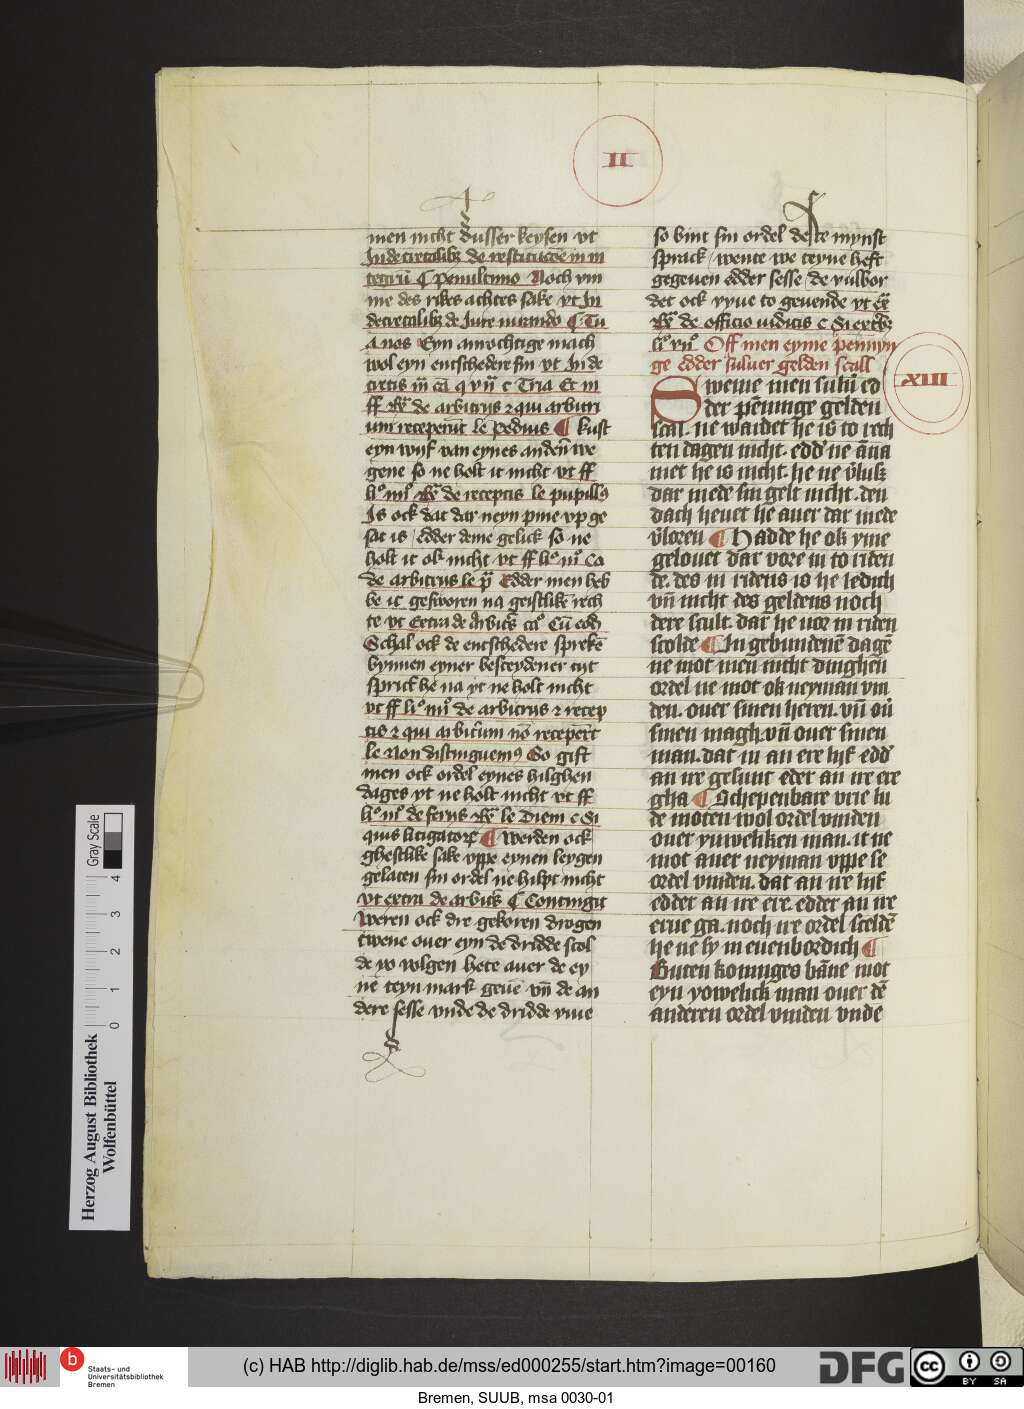 II
men nicht dusser keysen vt
In decretalibꝫ de restitucōe in in
tegrū ¶ penultimo Noch vm
me des rikes achtes sake vt In
decretalibꝫ de Jure iurando ¶ Tu
a nos Eyn anrochtige mach
wol eyn entschedere sin vt In de
cretis
de arbitrijs ⁊ qui arbitri
um receperūt le pedius ¶ kust
eyn wijf van eynes andern we
gene so ne holt it nicht vt ff
de receptis le pupillꝰ
Is ock dat dar neyn pine vp ge
sat is edder deme gelick so ne
holt it ok nicht vt ff
de arbitrijs le Edder men heb
be it gesworen na geistlikē rech
te vt Extra de
Schal ock de entschedere sprekē
bynnen eyner besceydener tijt
sprickt he na yt ne holt nicht
vt ff de arbitrijs ⁊ recep
tis ⁊ qui arbitriū nō receperīt
le Non distinguemꝰ So gift
men ock ordel eynes hilghen
dages yt ne holt nicht vt ff
de ferijs le Diem c Si
quis litigatorꝫ ¶ Werden ock
ghestlike sake vppe eynen leygen
gelaten sin ordel ne hilpt nicht
vt extra de arbitꝫ ¶ Contingit
Weren ock dre gekoren drogen
twene ouer eyn de dridde scol
de jo volgen hete auer de ey
ne teyn mark geuē vn̄ de an
dere sesse vnde de dridde viue
so vint sin ordel deste mynst
sprack wente we teyne heft
gegeuen edder sesse de vulbor
det ock vyue to geuende vt
de officio iudicis c
Off men eyme pennyn
ge edder suluer gelden scall
XIII
Sweme men sulū ed
der pēninge gelden
scal. ne wardet he is to rech
ten dagen nicht. edd' ne āna
met he is nicht. he ne v̄lust
dar mede sin gelt nicht. den
dach heuet he auer dar mede
v̄loren ¶ Hadde he ok yme
gelouet dar vore in to riden
de. des in ridens is he ledich
vn̄ nicht des geldens noch
dere scult. dar he vor in riden
scolde ¶ In gebundenē dagē
ne mot men nicht dinghen
ordel ne mot ok neyman vin
den. ouer sinen heren. vn̄ ou̇
sinen magh. vn̄ ouer sinen
man. dat in an ere lijf edd'
an ire gesunt eder an ire ere
gha ¶ Schepenbare vrie lu
de moten wol ordel vinden
ouer yuweliken man. it ne
mot auer neyman vppe se
ordel vinden. dat an ire lijf
edder an ire ere. edder an ire
erue ga. noch ire ordel sceldē
he ne sy in euenbordich ¶
Buten koninges bāne mot
eyn yowelick man ouer dē
anderen ordel vinden vnde
Gray Scale
0 1 2 3 4
Herzog August Bibliothek
Wolfenbüttel
b
Staats- und
Universitätsbibliothek
Bremen
(c) HAB http://diglib.hab.de/mss/ed000255/start.htm?image=00160
DFG
cc BY SA
Bremen, SUUB, msa 0030-01